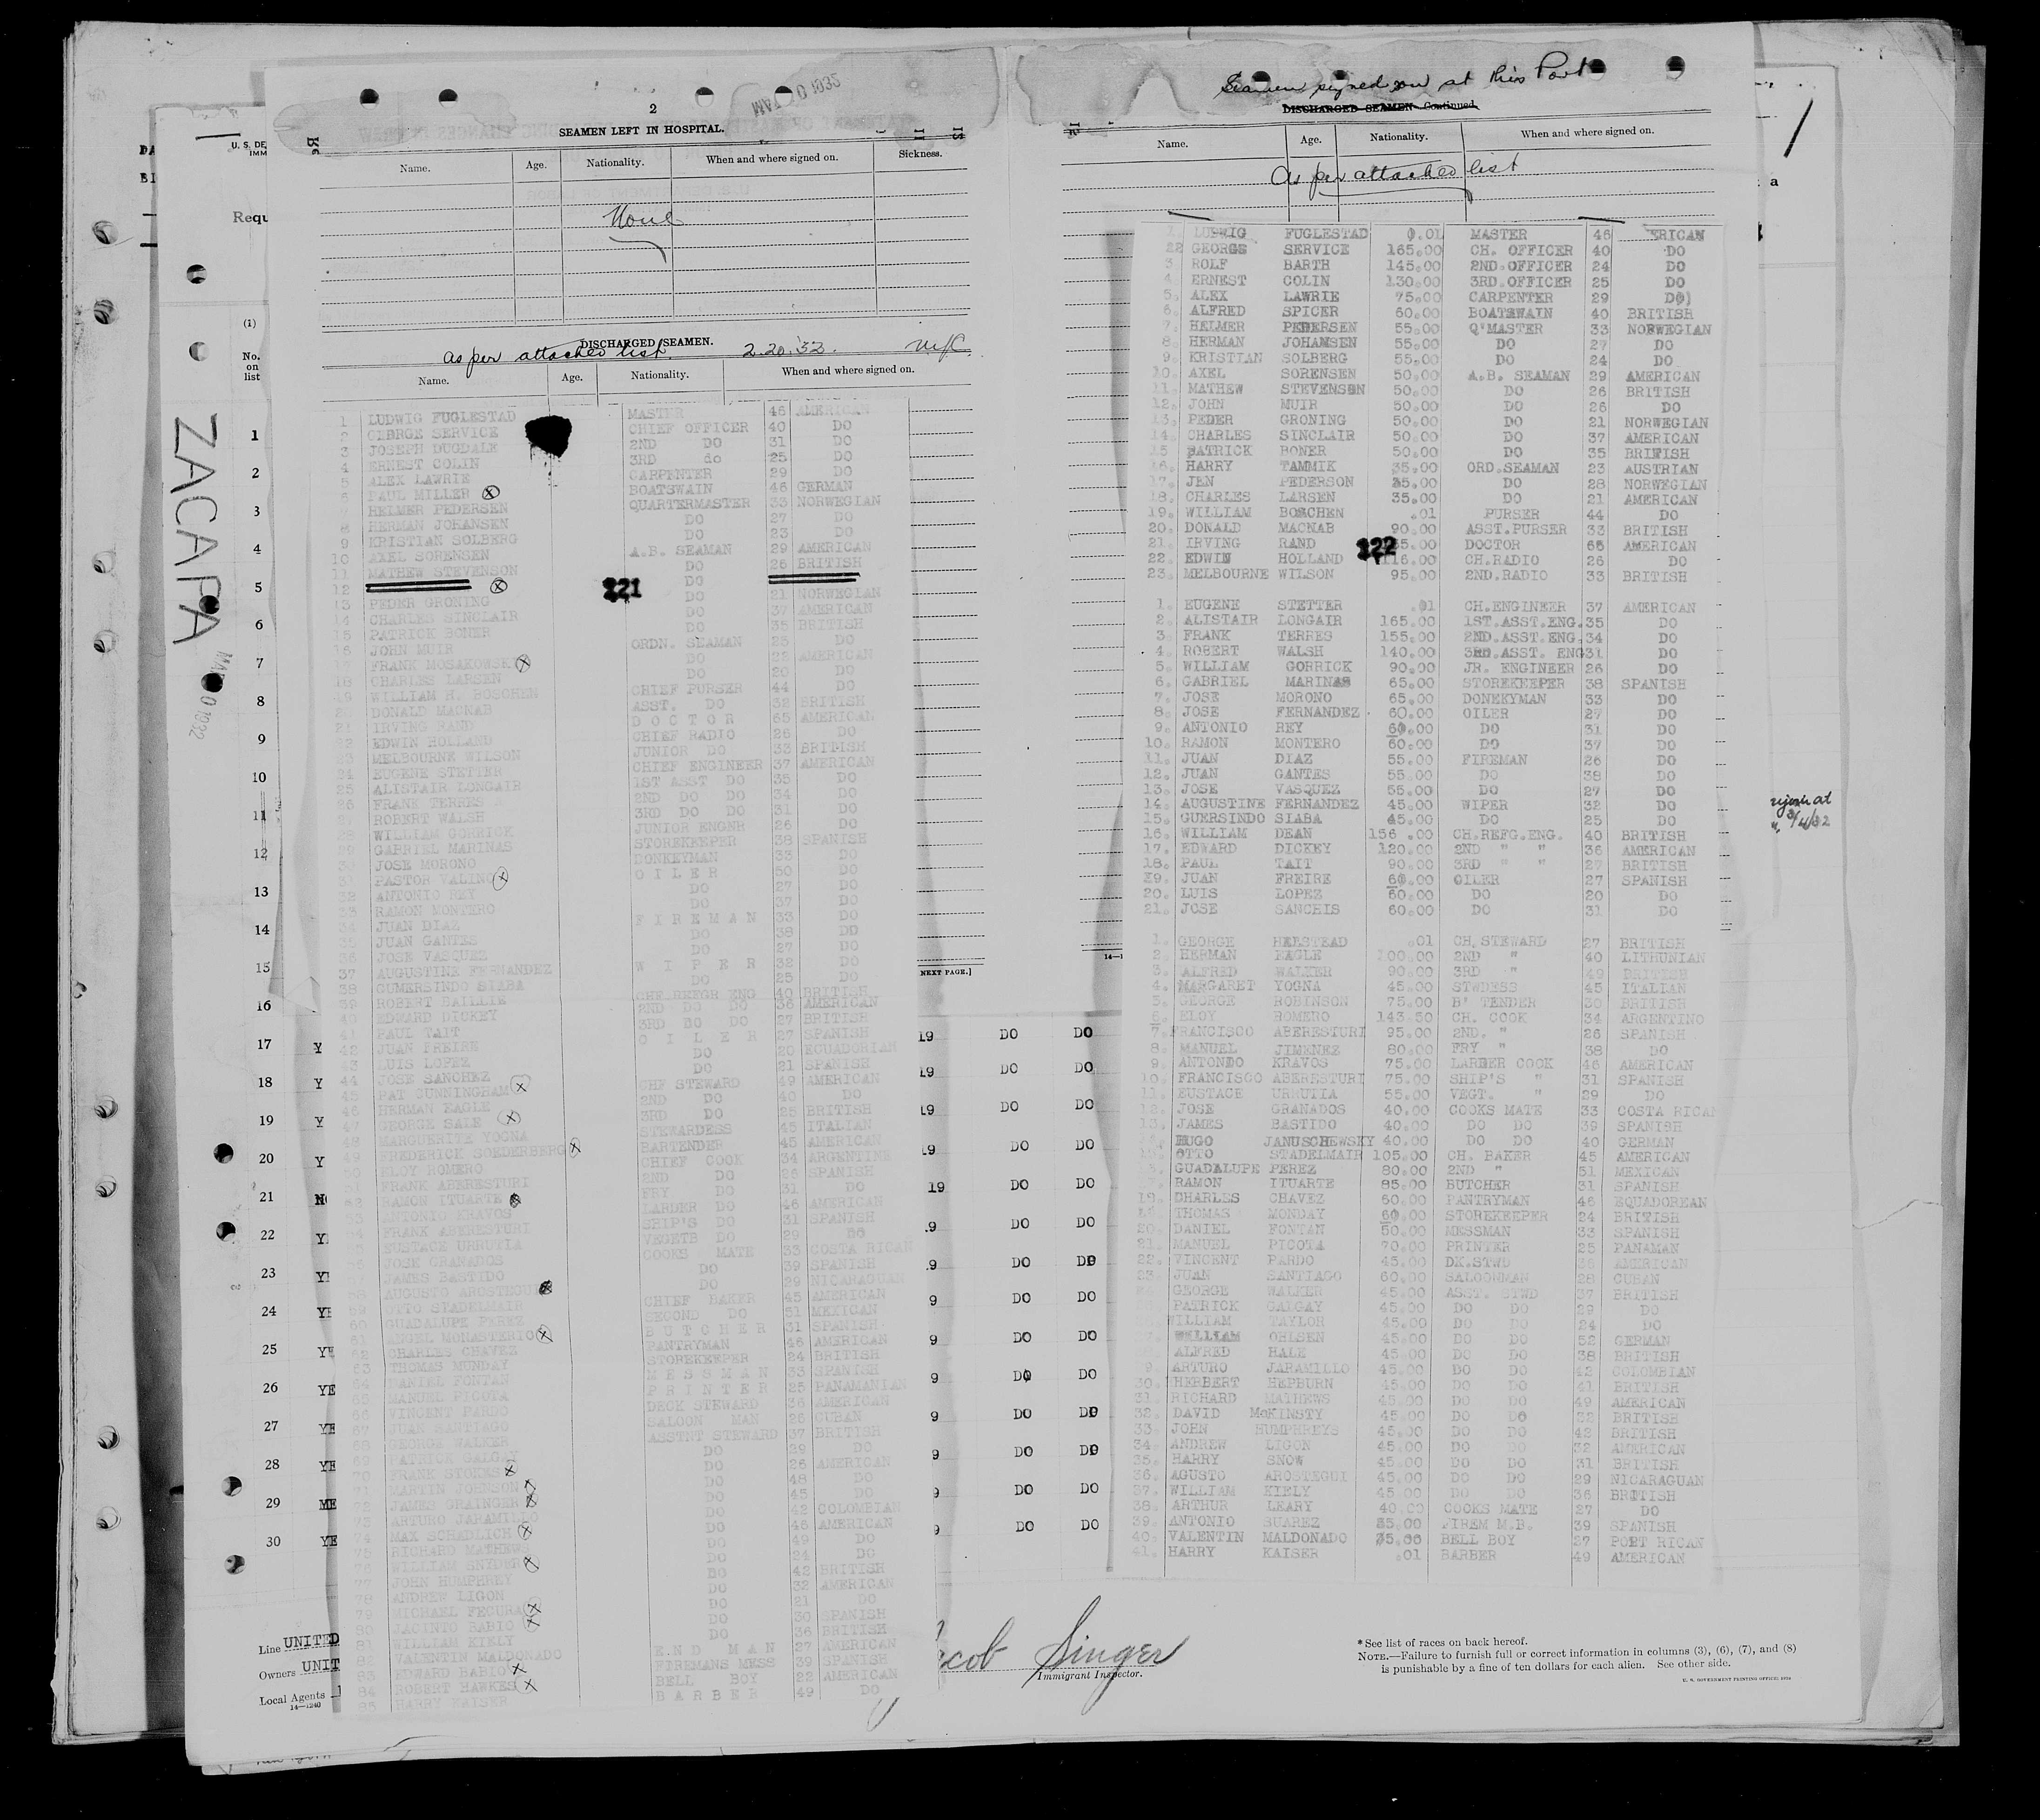 2
SEAMEN LEFT IN HOSPITAL.
Name. Age. Nationality. When and where signed on. Sickness.
None
DISCHARGED SEAMEN.
as per attached list 2.20.32.
Name. Age. Nationality. When and where signed on.
1 LUDWIG FUGLESTAD MASTER 46 AMERICAN
2 GEORGE SERVICE CHIEF OFFICER 40 DO
3 JOSEPH DUGDALE 2ND DO 31 DO
4 ERNEST COLIN 3RD do 25 DO
5 ALEX LAWRIE CARPENTER 29 DO
6 PAUL MILLER BOATSWAIN 46 GERMAN
7 HELMER PEDERSEN QUARTERMASTER 33 NORWEGIAN
8 HERMAN JOHANSEN DO 27 DO
9 KRISTIAN SOLBERG DO 23 DO
10 AXEL SORENSEN A.B. SEAMAN 29 AMERICAN
11 MATHEW STEVENSON DO 26 BRITISH
12 DO
221
13 PEDER GRONING DO 21 NORWEGIAN
14 CHARLES SINCLAIR DO 37 AMERICAN
15 PATRICK BONER DO 35 BRITISH
16 JOHN MUIR ORDN. SEAMAN 25 DO
FRANK MOSAKOWSKI DO 22 AMERICAN
18 CHARLES LARSEN DO 20 DO
19 WILLIAM H. BOSCHEN CHIEF PURSER 44 DO
DONALD MACNAB ASST. DO 32 BRITISH
21 IRVING RAND DOCTOR 65 AMERICAN
EDWIN HOLLAND CHIEF RADIO 26 DO
MELBOURNE WILSON JUNIOR DO 33 BRITISH
24 EUGENE STETTER CHIEF ENGINEER 37 AMERICAN
25 ALISTAIR LONGAIR 1ST ASST DO 35 DO
26 FRANK TERRES 2ND DO DO 34 DO
ROBERT WALSH 3RD DO DO 31 DO
WILLIAM GORRICK JUNIOR ENGNR 26 DO
GABRIEL MARINAS STOREKEEPER 38 SPANISH
JOSE MORONO DONKEYMAN 33 DO
31 PASTOR VALINO OILER 50 DO
32 ANTONIO REY DO 27 DO
33 RAMON MONTERO DO 37 DO
34 JUAN DIAZ FIREMAN 33 DO
35 JUAN GANTES DO 38 DO
36 JOSE VASQUEZ DO 27 DO
37 AUGUSTINE FERNANDEZ WIPER 32 DO
38 GUMERSINDO SIABA DO 25 DO
39 ROBERT BAILLIE CHF REFGR ENG 40 BRITISH
40 EDWARD DICKEY 2ND DO DO 36 AMERICAN
41 PAUL TAIT 3RD DO DO 27 BRITISH
42 JUAN FREIRE OILER 27 SPANISH
43 LUIS LOPEZ DO 20 ECUADORIAN
44 JOSE SANCHEZ DO 21 SPANISH
45 PAT CUNNINGHAM CHF STEWARD 49 AMERICAN
46 HERMAN EAGLE 2ND DO 40 DO
47 GEORGE SALE 3RD DO 25 BRITISH
48 MARGUERITE YOGNA STEWARDESS 45 ITALIAN
49 FREDERICK SOEDERBERG BARTENDER 45 AMERICAN
50 ELOY ROMERO CHIEF COOK 34 ARGENTINE
FRANK ABERESTURI 2ND DO 26 SPANISH
RAMON ITUARTE FRY DO 31 DO
ANTONIO KRAVOS LARDER DO 46 AMERICAN
FRANK ABERESTURI SHIP'S DO 31 SPANISH
EUSTACE URRUTIA VEGETB DO 29 DO
JOSE GRANADOS COOKS MATE 33 COSTA RICAN
JAMES BASTIDO DO 39 SPANISH
AUGUSTO AROSTEGUI DO 29 NICARAGUAN
OTTO STADELMAIR CHIEF BAKER 45 AMERICAN
60 GUADALUPE PEREZ SECOND DO 51 MEXICAN
61 ANGEL MONASTERIO BUTCHER 31 SPANISH
62 CHARLES CHAVEZ PANTRYMAN 46 AMERICAN
63 THOMAS MUNDAY STOREKEEPER 24 BRITISH
DANIEL FONTAN MESSMAN 33 SPANISH
MANUEL PICOTA PRINTER 25 PANAMANIAN
VINCENT PARDO DECK STEWARD 36 AMERICAN
JUAN SANTIAGO SALOON MAN 26 CUBAN
GEORGE WALKER ASSTNT STEWARD 37 BRITISH
69 PATRICK GALGAY DO 29 DO
70 FRANK STOKES DO 26 AMERICAN
71 MARTIN JOHNSON DO 48 DO
72 JAMES GRAINGER DO 45 DO
73 ARTURO JARAMILLO DO 42 COLOMBIAN
74 MAX SCHADLICH DO 46 AMERICAN
75 RICHARD MATHEWS DO 49 DO
WILLIAM SNYDER DO 24 DO
JOHN HUMPHREY DO 42 BRITISH
78 ANDREW LIGON DO 32 AMERICAN
79 MICHAEL FECURA DO 21 DO
80 JACINTO BABIO DO 30 SPANISH
81 WILLIAM KIELY DO 36 BRITISH
82 VALENTIN MALDONADO END MAN 27 AMERICAN
83 EDWARD BABIO FIREMANS MESS 39 SPANISH
84 ROBERT HAWKES BELL BOY 22 AMERICAN
85 HARRY KAISER BARBER 49 DO
Seamen signed on at this Port
DISCHARGED SEAMEN—Continued
Name. Age. Nationality. When and where signed on.
As per attached list
1. LUDWIG FUGLESTAD 0.01 MASTER 46 ERICAN
22 GEORGE SERVICE 165.00 CH. OFFICER 40 DO
3. ROLF BARTH 145.00 2ND.OFFICER 24 DO
4. ERNEST COLIN 130.00 3RD.OFFICER 25 DO
5. ALEX LAWRIE 75.00 CARPENTER 29 DO
6. ALFRED SPICER 60.00 BOATSWAIN 40 BRITISH
7. HELMER PEDERSEN 55.00 Q'MASTER 33 NORWEGIAN
8. HERMAN JOHAMSEN 55.00 DO 27 DO
9. KRISTIAN SOLBERG 55.00 DO 24 DO
10. AXEL SORENSEN 50.00 A.B. SEAMAN 29 AMERICAN
11. MATHEW STEVENSON 50.00 DO 26 BRITISH
12. JOHN MUIR 50.00 DO 26 DO
13. PEDER GRONING 50.00 DO 21 NORWEGIAN
14. CHARLES SINCLAIR 50.00 DO 37 AMERICAN
15 PATRICK BONER 50.00 DO 35 BRITISH
16. HARRY TAMMIK 35.00 ORD.SEAMAN 23 AUSTRIAN
17. JEN PEDERSON 35.00 DO 28 NORWEGIAN
18. CHARLES LARSEN 35.00 DO 21 AMERICAN
19. WILLIAM BOSCHEN .01 PURSER 44 DO
20. DONALD MACNAB 90.00 ASST.PURSER 33 BRITISH
21. IRVING RAND 5.00 DOCTOR 65 AMERICAN
222
22. EDWIN HOLLAND 116.00 CH.RADIO 26 DO
23. MELBOURNE WILSON 95.00 2ND.RADIO 33 BRITISH
1. EUGENE STETTER .01 CH.ENGINEER 37 AMERICAN
2. ALISTAIR LONGAIR 165.00 1ST.ASST.ENG. 35 DO
3. FRANK TERRES 155.00 2ND.ASST.ENG. 34 DO
4. ROBERT WALSH 140.00 3RD.ASST. ENG 31 DO
5. WILLIAM GORRICK 90.00 JR. ENGINEER 26 DO
6. GABRIEL MARINAS 65.00 STOREKEEPER 38 SPANISH
7. JOSE MORONO 65.00 DONKEYMAN 33 DO
8. JOSE FERNANDEZ 60.00 OILER 27 DO
9. ANTONIO REY 60.00 DO 31 DO
10. RAMON MONTERO 60.00 DO 37 DO
11. JUAN DIAZ 55.00 FIREMAN 26 DO
12. JUAN GANTES 55.00 DO 38 DO
13. JOSE VASQUEZ 55.00 DO 27 DO
14. AUGUSTINE FERNANDEZ 45.00 WIPER 32 DO
15. GUERSINDO SIABA 45.00 DO 25 DO
16. WILLIAM DEAN 156 .00 CH.REFG.ENG. 40 BRITISH
17. EDWARD DICKEY 120.00 2ND " " 36 AMERICAN
18. PAUL TAIT 90.00 3RD " " 27 BRITISH
19. JUAN FREIRE 60.00 OILER 27 SPANISH
20. LUIS LOPEZ 60.00 DO 20 DO
21. JOSE SANCHIS 60.00 DO 31 DO
1. GEORGE HELSTEAD .01 CH.STEWARD 27 BRITISH
2. HERMAN EAGLE 100.00 2ND " 40 LITHUNIAN
3. ALFRED WALKER 90.00 3RD " 49 BRITISH
4. MARGARET YOGNA 45.00 STWDESS 45 ITALIAN
5. GEORGE ROBINSON 75.00 B' TENDER 30 BRITISH
6. ELOY ROMERO 143.50 CH. COOK 34 ARGENTINO
7. FRANCISCO ABERESTURI 95.00 2ND. " 26 SPANISH
8. MANUEL JIMENEZ 80.00 FRY " 38 DO
9. ANTONDO KRAVOS 75.00 LARDER COOK 46 AMERICAN
10. FRANCISCO ABERESTURI 75.00 SHIP'S " 31 SPANISH
11. EUSTACE URRUTIA 55.00 VEGT. " 29 DO
12. JOSE GRANADOS 40.00 COOKS MATE 33 COSTA RICAN
13. JAMES BASTIDO 40.00 DO DO 39 SPANISH
HUGO JANUSCHEWSKY 40.00 DO DO 40 GERMAN
OTTO STADELMAIR 105.00 CH. BAKER 45 AMERICAN
GUADALUPE PEREZ 80.00 2ND " 51 MEXICAN
RAMON ITUARTE 85.00 BUTCHER 31 SPANISH
18. DHARLES CHAVEZ 60.00 PANTRYMAN 46 EQUADOREAN
THOMAS MONDAY 60.00 STOREKEEPER 24 BRITISH
20. DANIEL FONTAN 50.00 MESSMAN 33 SPANISH
21. MANUEL PICOTA 70.00 PRINTER 25 PANAMAN
22. VINCENT PARDO 45.00 DK.STWD 36 AMERICAN
23. JUAN SANTIAGO 60.00 SALOONMAN 28 CUBAN
GEORGE WALKER 45.00 ASST. STWD 37 BRITISH
PATRICK GALGAY 45.00 DO DO 29 DO
WILLIAM TAYLOR 45.00 DO DO 24 DO
WILLIAM OHLSEN 45.00 DO DO 52 GERMAN
ALFRED HALE 45.00 DO DO 38 BRITISH
9. ARTURO JARAMILLO 45.00 DO DO 42 COLOMBIAN
30. HERBERT HEPBURN 45.00 DO DO 41 BRITISH
31. RICHARD MATHEWS 45.00 DO DO 49 AMERICAN
32. DAVID McKINSTY 45.00 DO DO 32 BRITISH
33. JOHN HUMPHREYS 45.00 DO DO 42 BRITISH
34. ANDREW LIGON 45.00 DO DO 32 AMERICAN
35. HARRY SNOW 45.00 DO DO 31 BRITISH
36. AGUSTO AROSTEGUI 45.00 DO DO 29 NICARAGUAN
37. WILLIAM KIELY 45.00 DO DO 36 BRITISH
38. ARTHUR LEARY 40.00 COOKS MATE 27 DO
39. ANTONIO SUAREZ 35.00 FIREM M.B. 39 SPANISH
40. VALENTIN MALDONADO 35.00 BELL BOY 27 PORT RICAN
41. HARRY KAISER .01 BARBER 49 AMERICAN
U. S. DE
IMM
Requ
(1)
No.
on
list
ZACAPA
1
2
3
4
5
6
7
8
9
10
11
12
13
14
15
NEXT PAGE.]
16
17 Y 19 DO DO
18 Y 19 DO DO
19 Y 19 DO DO
20 Y 19 DO DO
21 N 19 DO DO
22 Y 9 DO DO
23 Y 9 DO DO
24 YE 9 DO DO
25 YE 9 DO DO
26 YE 9 DO DO
27 YE 9 DO DO
28 YE 9 DO DO
29 ME 9 DO DO
30 YE 9 DO DO
Line UNITED
Owners UNIT
Local Agents
14—1240
cob Singer
Immigrant Inspector.
* See list of races on back hereof.
NOTE.—Failure to furnish full or correct information in columns (3), (6), (7), and (8)
is punishable by a fine of ten dollars for each alien. See other side.
U. S. GOVERNMENT PRINTING OFFICE